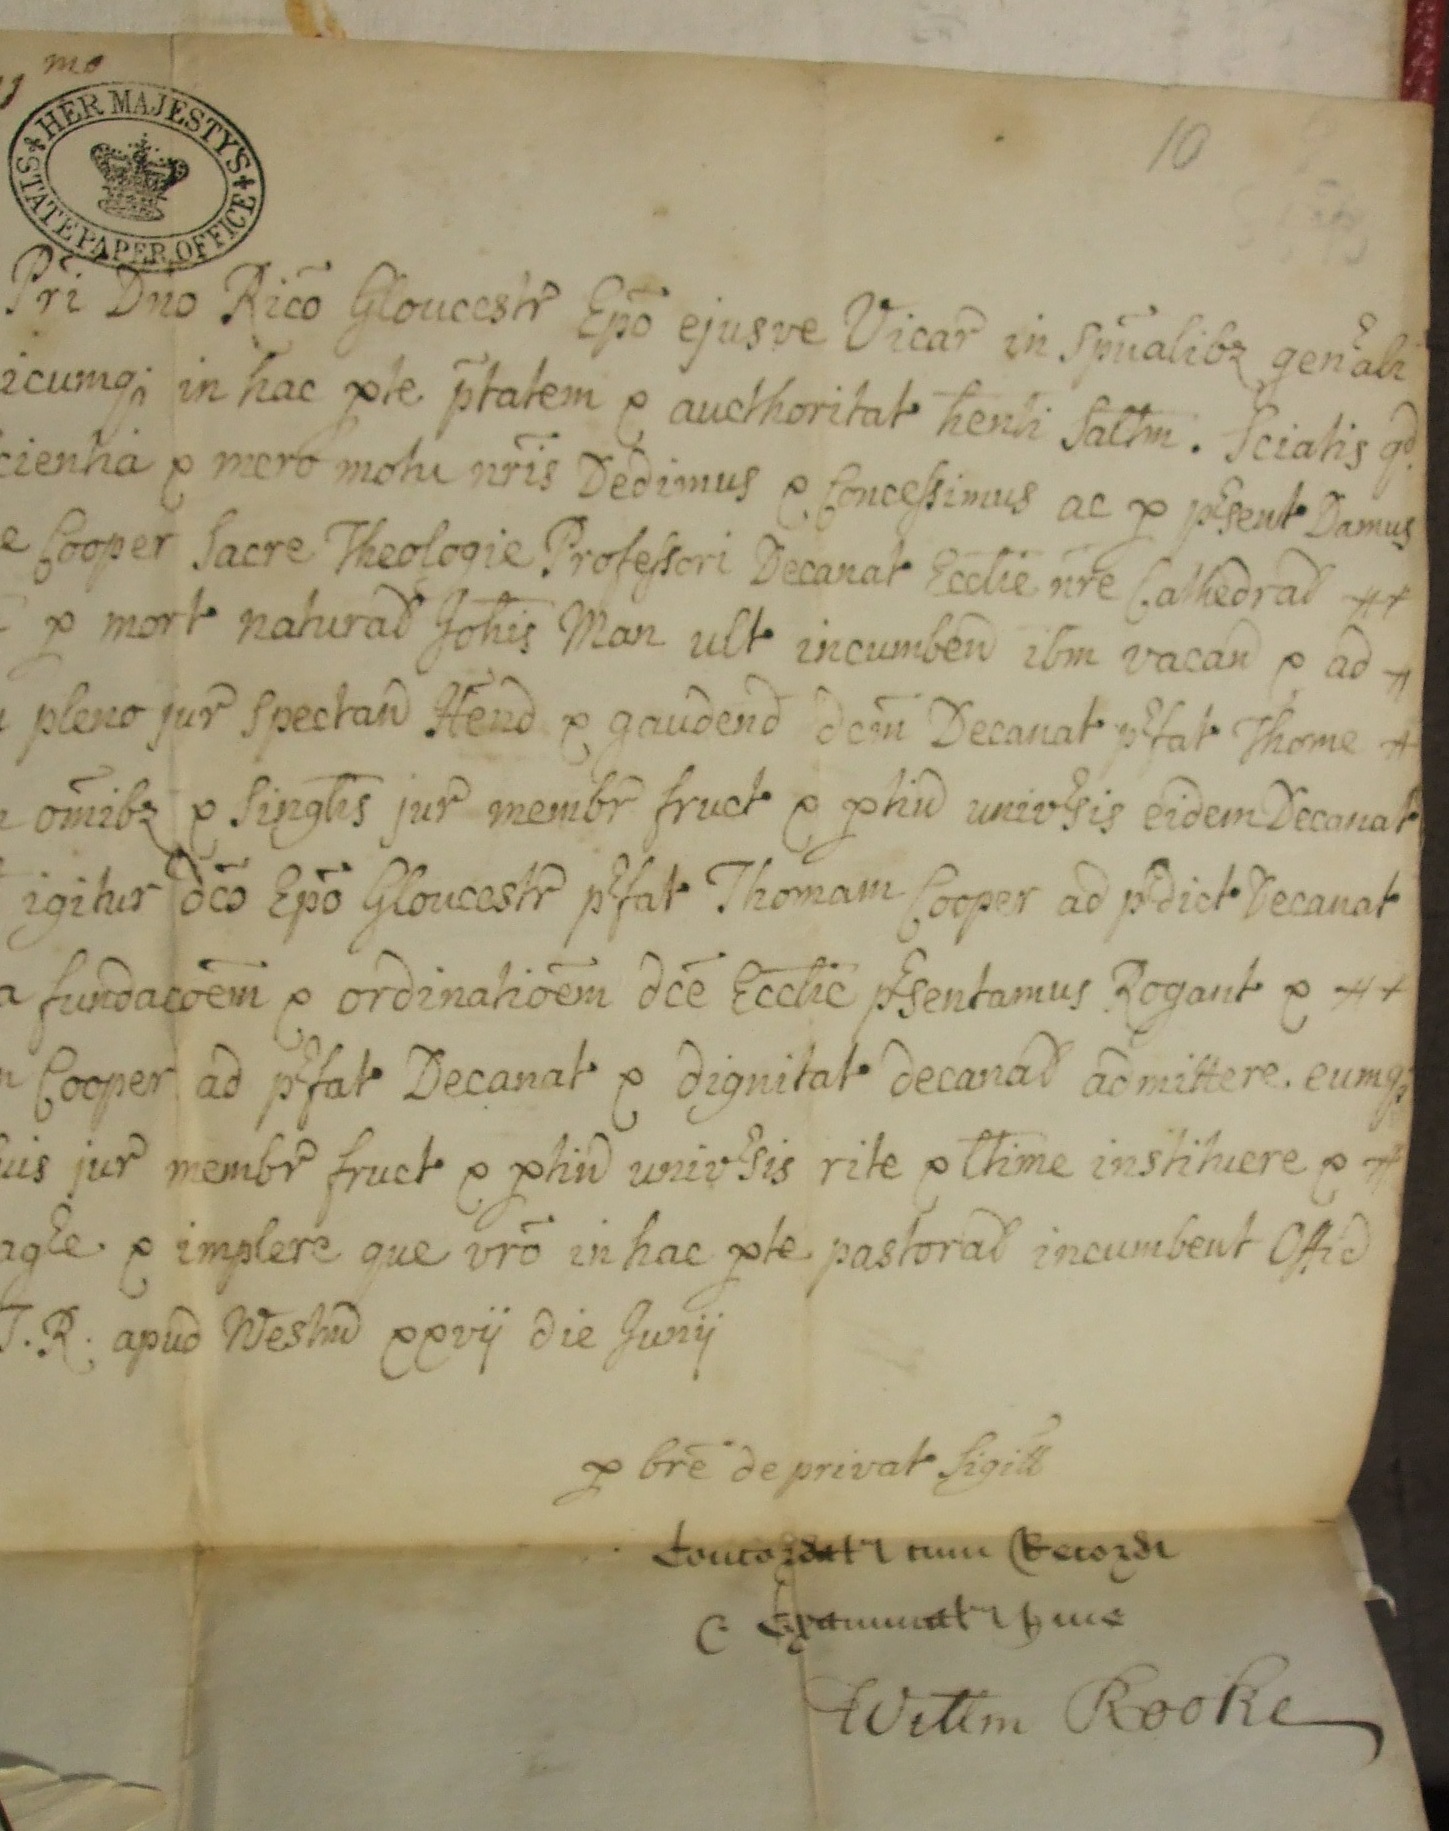 mo
HER MAJESTY'S STATE PAPER OFFICE
10
Pri Dno Rico Gloucestr Epo ejusve Vicar in Spualibz genali
icumqz in hac pte ptatem & aucthoritat henti Saltm. Sciatis qd
cientia & mero motu nris Dedimus & Concessimus ac p psent Damus
e Cooper Sacre Theologie Professori Decanat Ecclie nre Cathedral
p mort natural Johis Man ult incumben ibm vacan & ad
pleno jur spectan Hend & gaudend dcm Decanat pfat Thome
omibz & Singlis jur membr fruct & ptin univsis eidem Decanat
igitur dco Epo Gloucestr pfat Thomam Cooper ad pdict Decanat
a fundacoem & ordinatioem dce Ecclie psentamus Rogant &
Cooper ad pfat Decanat & dignitat decanal admittere eumqz
uis jur membr fruct & ptin univsis rite & ltime instituere &
age & implere que vro in hac pte pastoral incumbent Offic
T.R. apud Westm xxvij die Junij
p bre de privat Sigill
Concordat cum Recordi
& Examinat p me
Willm Rooke